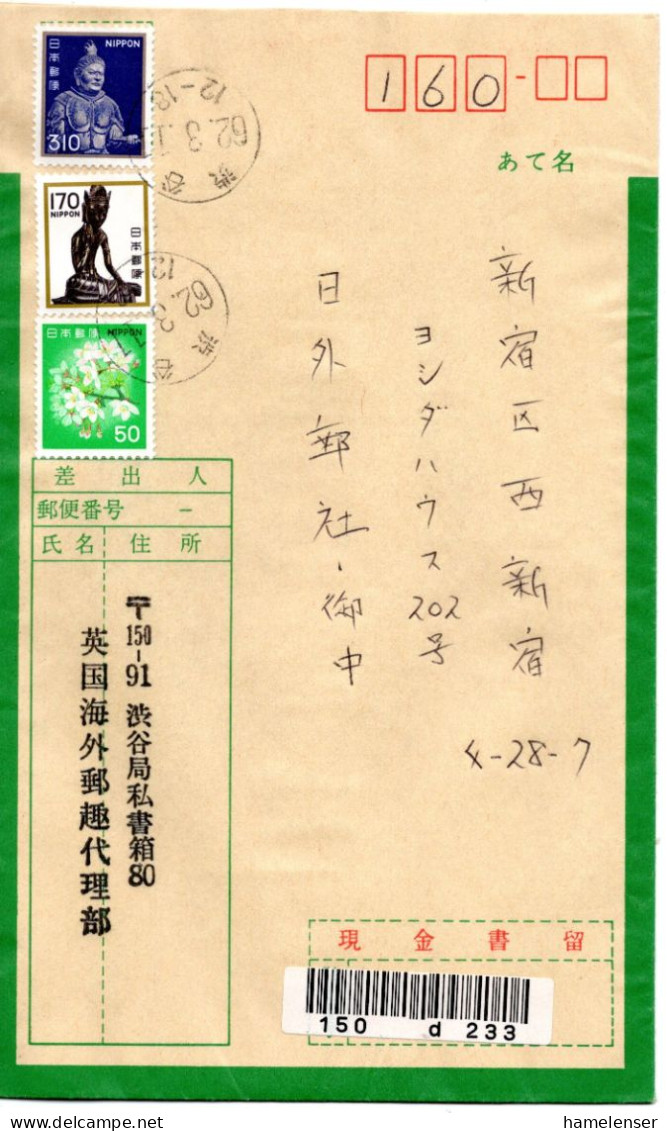 日本郵便 NIPPON
310
170
NIPPON
日本郵便
日本郵便 NIPPON
50
渋谷
62.3.
12-18
渋谷
62.3.
12
160-
あて名
新宿区西新宿
4-28-7
ヨシダハウス202号
日外郵社・御中
差出人
郵便番号 -
氏名 住所
〒150-91 渋谷局私書箱80
英国海外郵趣代理部
現金書留
150 d 233
hamelenser